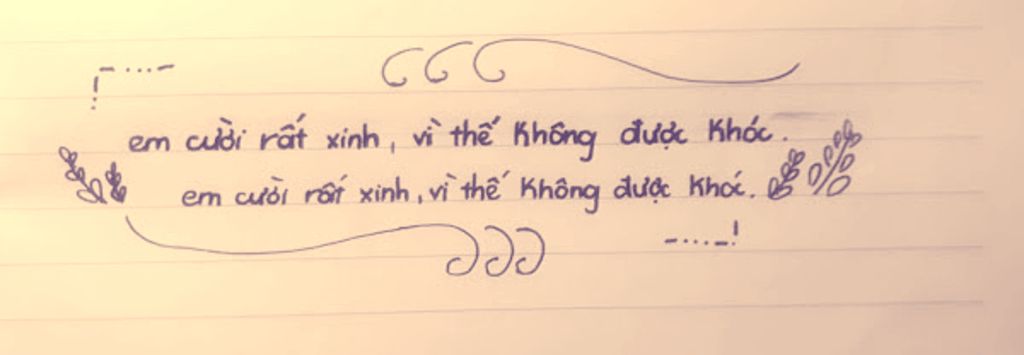 em cười rất xinh, vì thế không được khóc.
em cười rất xinh, vì thế không được khóc.